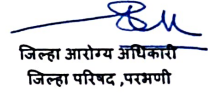 जिल्हा आरोग्य अधिकारी
जिल्हा परिषद ,परभणी